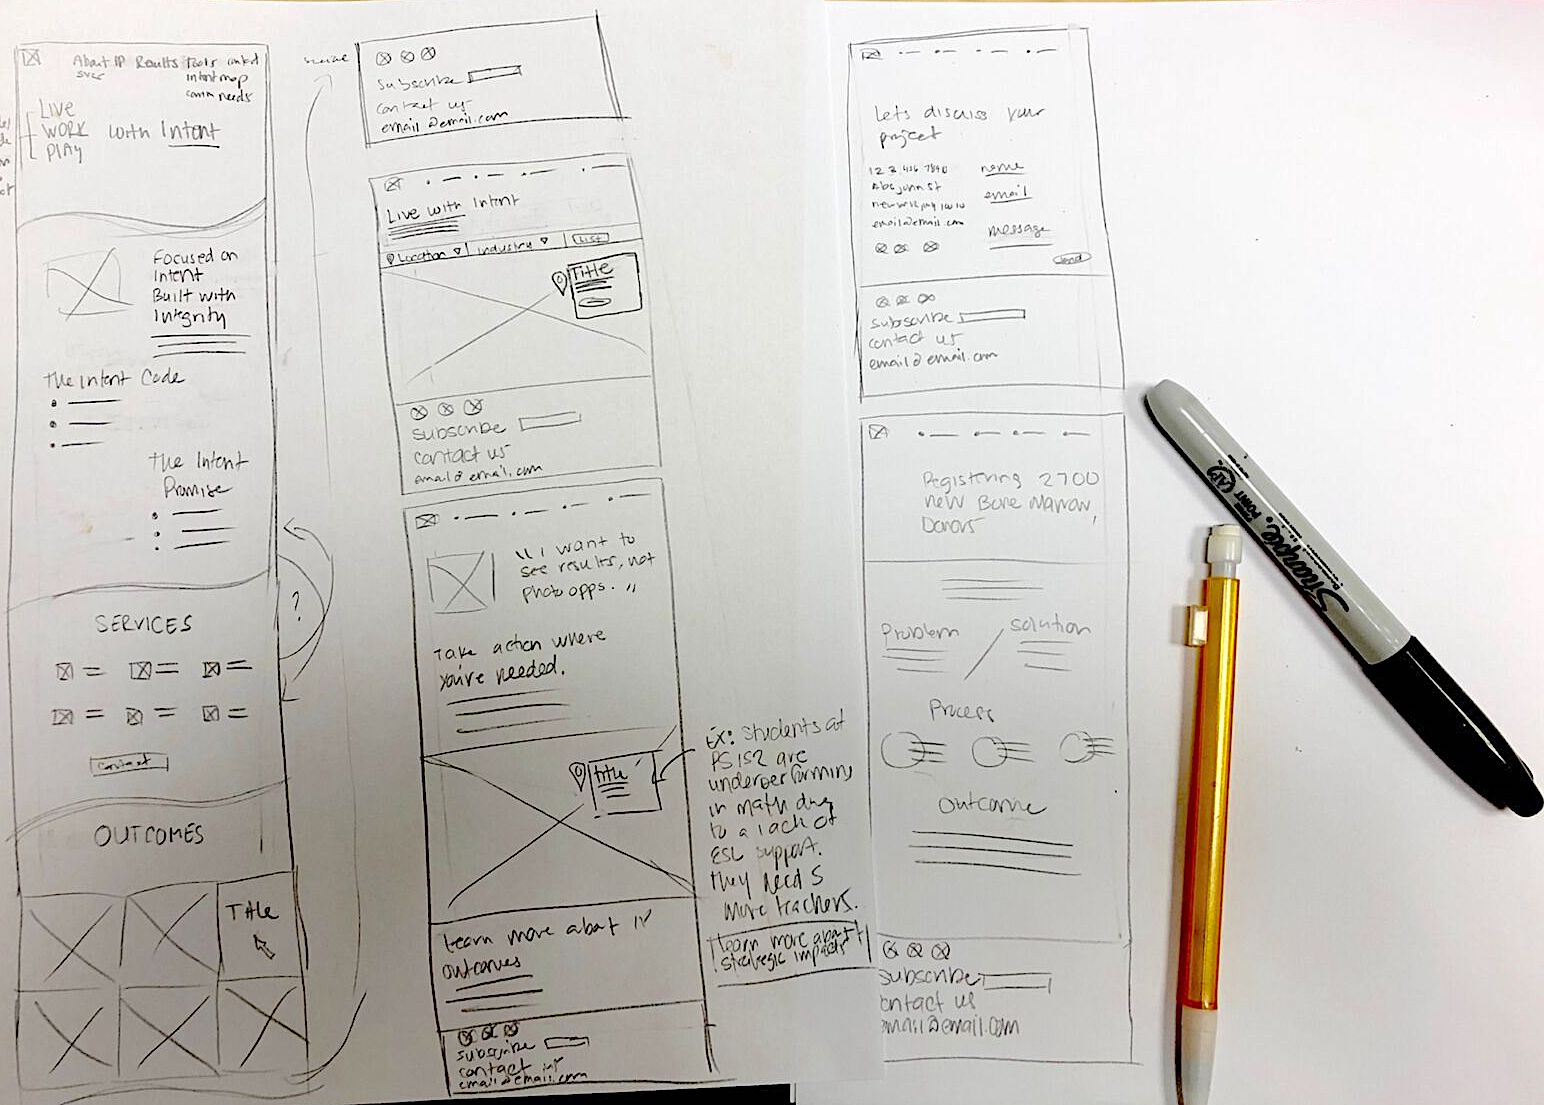 About IP Results Tools contact
svcs intent map
comm needs
LIVE
WORK with Intent
PLAY
Focused on
Intent
Built with
Integrity
The Intent Code
The Intent
Promise
?
SERVICES
contact
OUTCOMES
Title
subscribe
contact us
email@email.com
Live with Intent
Location Industry List
Title
subscribe
contact us
email@email.com
"I want to
see results, not
photo opps."
Take action where
you're needed.
Title
Ex: Students at
PS 152 are
underperforming
in math due
to a lack of
ESL support.
They need 5
more teachers.
Learn more about
strategic impacts
Learn more about IP
outcomes
subscribe
contact us
email@email.com
Lets discuss your
project
123 456 7890 name
New York, NY 10010 email
email@email.com
message
send
subscribe
contact us
email@email.com
Registering 2700
new Bone Marrow
Donors
Problem / Solution
Process
Outcome
subscribe
contact us
email@email.com
Sharpie